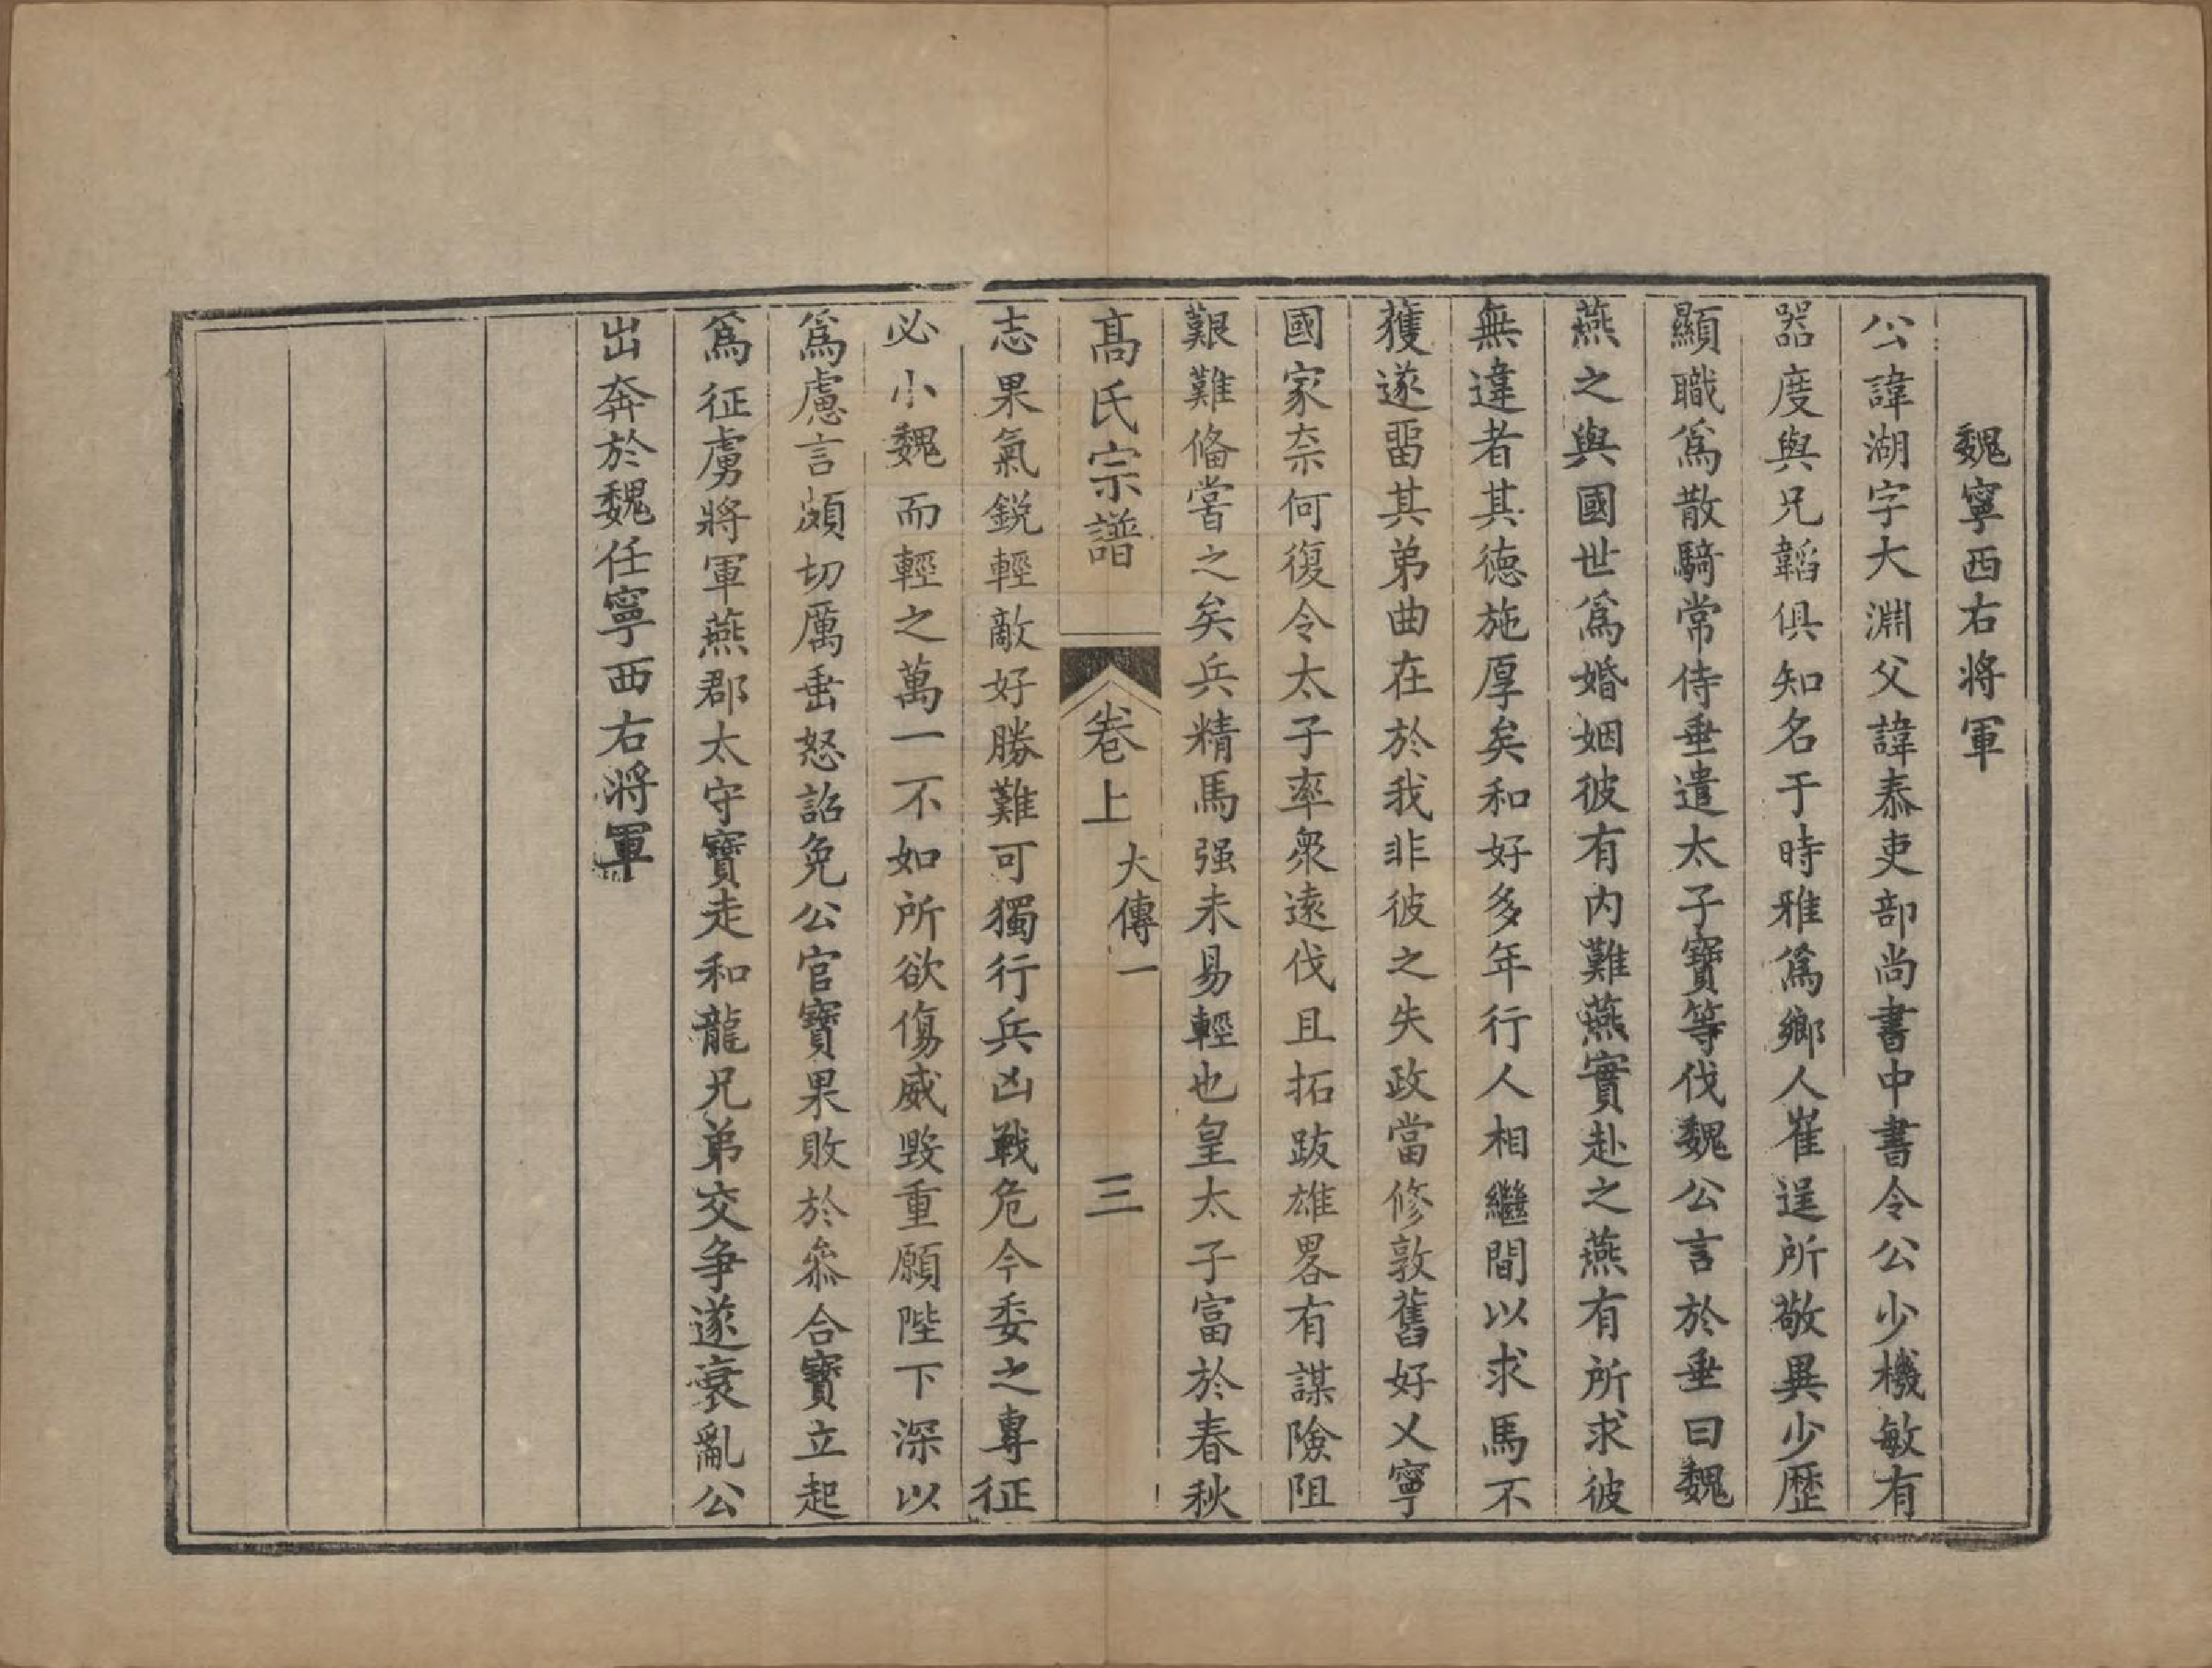 魏寧西右将軍
公諱湖字大淵父諱泰吏部尚書中書令公少機敏有
器度與兄韜俱知名于時雅爲鄉人崔逞所敬異少歷
顯職爲散騎常侍垂遣太子寶等伐魏公言於垂曰魏
燕之與國世爲婚姻彼有内難燕實赴之燕有所求彼
無違者其德施厚矣和好多年行人相繼間以求馬不
獲遂畱其弟曲在於我非彼之失政當修敦舊好乂寧
國家柰何復令太子率衆遠伐且拓跋雄畧有謀險阻
艱難俻嘗之矣兵精馬强未易輕也皇太子富於春秋
高氏宗譜 卷上 大傳一 三
志果氣銳輕敵好勝難可獨行兵凶戰危今委之專征
必小魏而輕之萬一不如所欲傷威毀重願陛下深以
爲慮言頗切厲垂怒詔免公官寶果敗於叅合寶立起
爲征虜將軍燕郡太守寶走和龍兄弟交爭遂衰亂公
出奔於魏任寧西右將軍